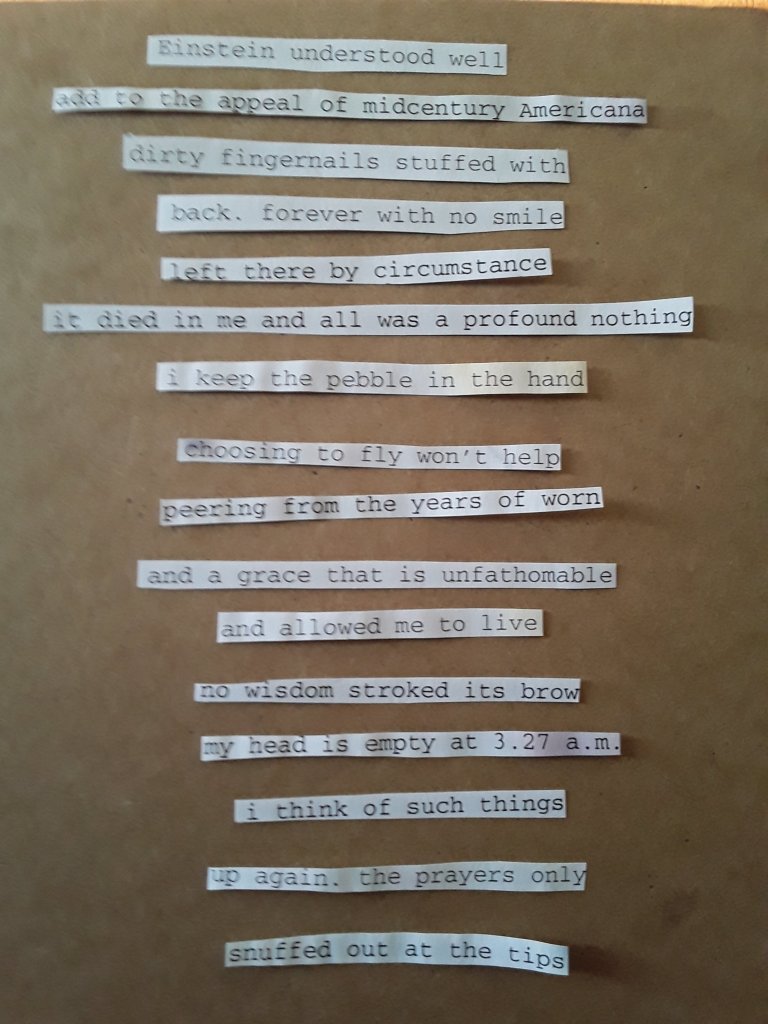 Einstein understood well
add to the appeal of midcentury Americana
dirty fingernails stuffed with
back. forever with no smile
left there by circumstance
it died in me and all was a profound nothing
i keep the pebble in the hand
choosing to fly won't help
peering from the years of worn
and a grace that is unfathomable
and allowed me to live
no wisdom stroked its brow
my head is empty at 3.27 a.m.
i think of such things
up again. the prayers only
snuffed out at the tips